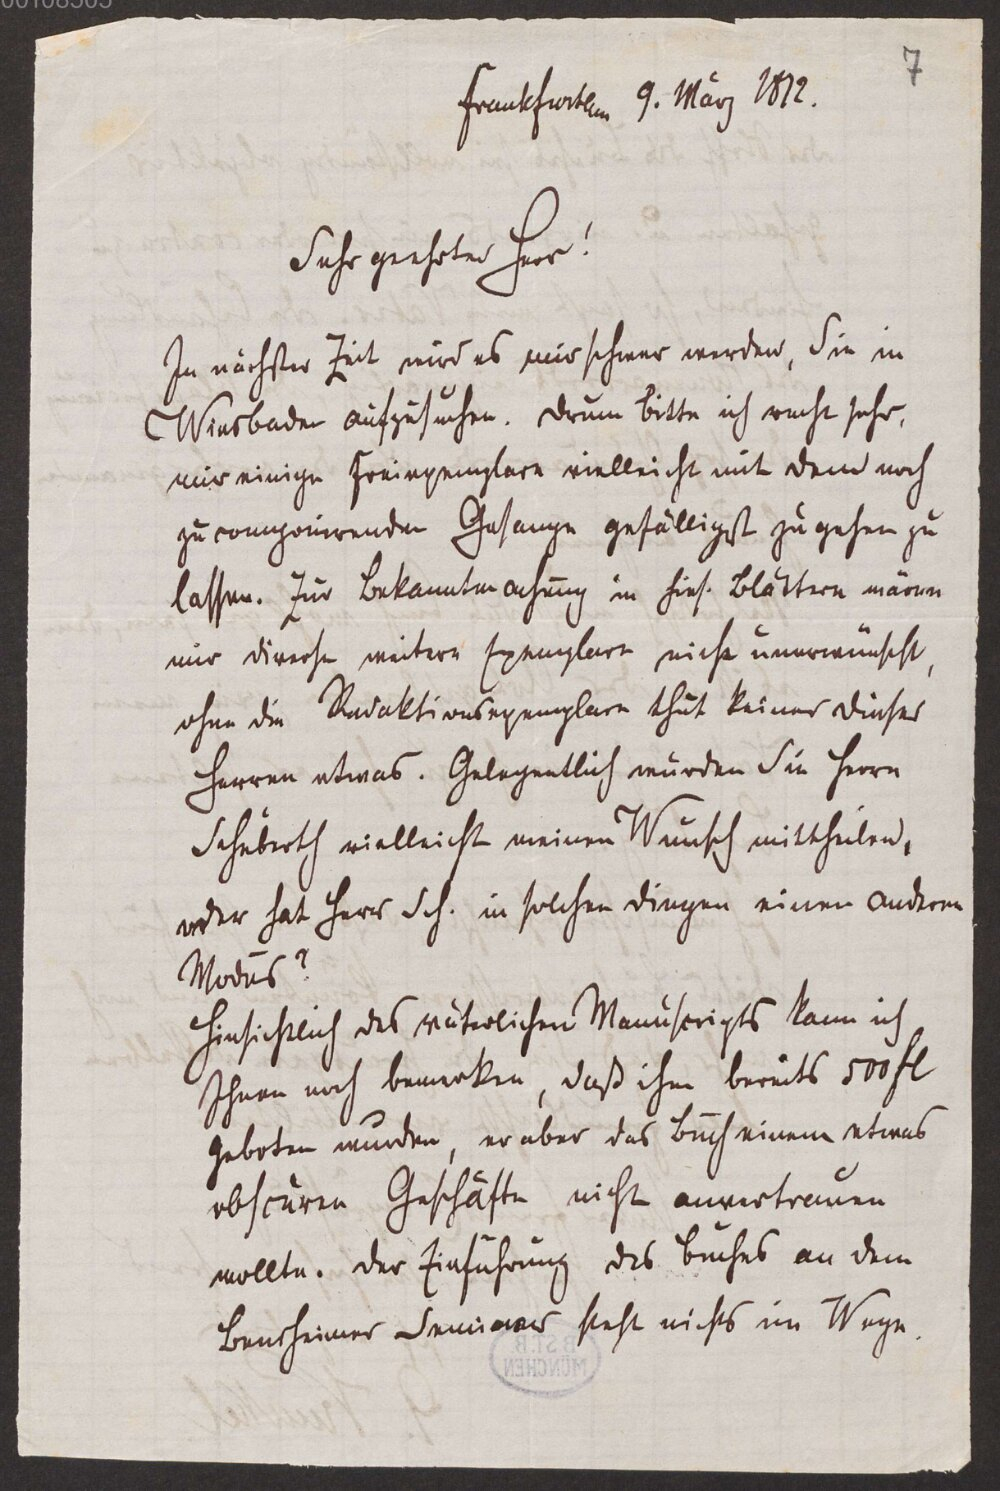 7
Frankfurt a/m 9. März 1872.
Sehr geehrter Herr!
In nächster Zeit wird es mir schwer werden, Sie in
Wiesbaden aufzusuchen. Drum bitte ich recht sehr,
mir einige Freiexemplare vielleicht mit dem noch
zu componirenden Gesange gefälligst zugehen zu
lassen. Zur Bekanntmachung in hies. Blättern wären
mir diverse weitere Exemplare nicht unerwünscht,
ohne die Redaktionsexemplare thut keiner dieser
Herren etwas. Gelegentlich würden Sie Herrn
Schuberth vielleicht meinen Wunsch mittheilen,
oder hat Herr Sch. in solchen Dingen einen anderen
Modus?
Hinsichtlich des väterlichen Manuscripts kann ich
Ihnen noch bemerken, daß ihm bereits 500 fl
geboten wurden, er aber das Buch einem etwas
obscuren Geschäfte nicht anvertrauen
wollte. Der Einführung des Buches an dem
Bensheimer Seminar steht nichts im Wege.
MÜNCHEN